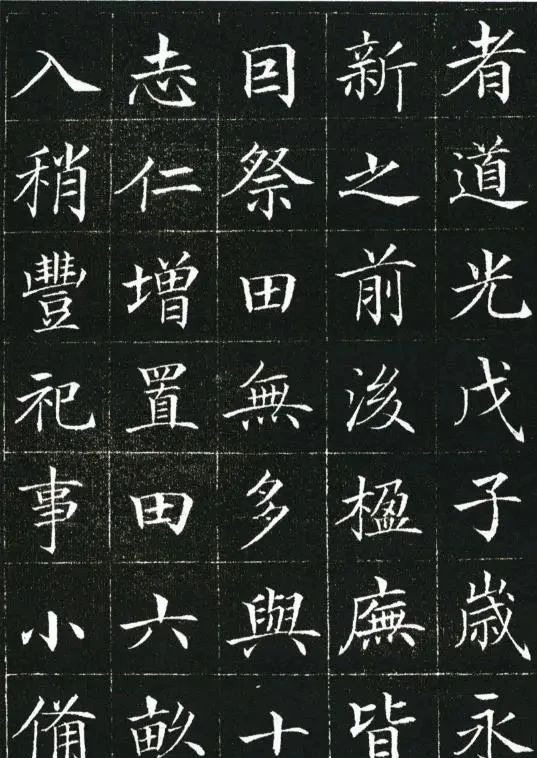 者道光戊子歲永
新之前後楹廡皆
因祭田無多與十
志仁增置田六畝
入稍豐祀事小備